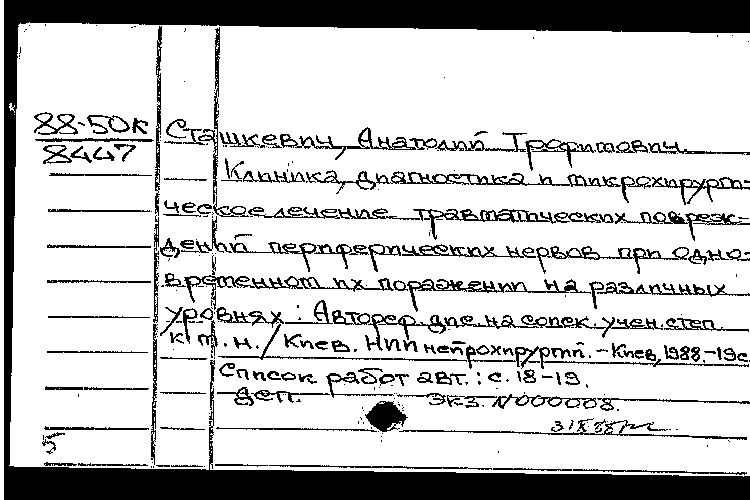 88-50к
8447
Сташкевич, Анатолий Трофимович.
Клиника, диагностика и микрохирурги-
ческое лечение травматических повреж-
дений периферических нервов при одно-
временном их поражении на различных
уровнях: Автореф. дис на соиск. учен. степ.
к. м. н. / Киев. НИИ нейрохирургии. – Киев, 1988. – 19 с.
Список работ авт.: с. 18-19.
Деп. Экз. N 000008.
5